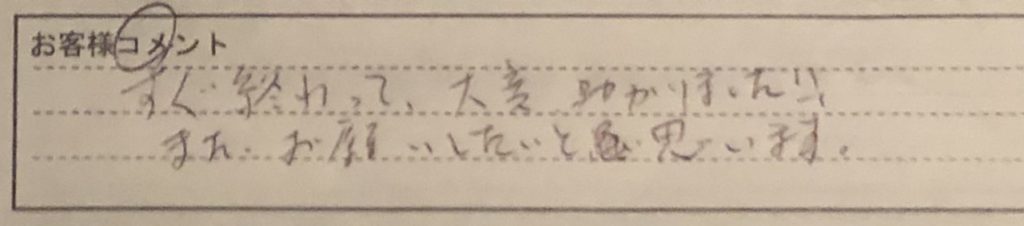 お客様コメント
すぐ終わって、大変助かりました!!
また、お願いしたいと思います。